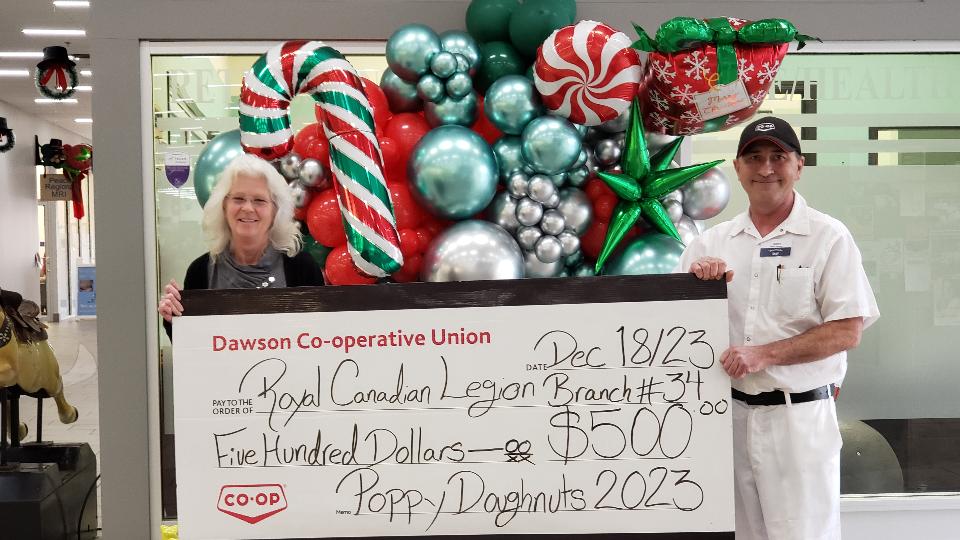 Peace
Regional
MRI
CO-OP
Dawson Co-operative Union
DATE Dec 18/23
PAY TO THE
ORDER OF Royal Canadian Legion Branch #34
Five Hundred Dollars — $500.00
CO-OP
Memo Poppy Doughnuts 2023